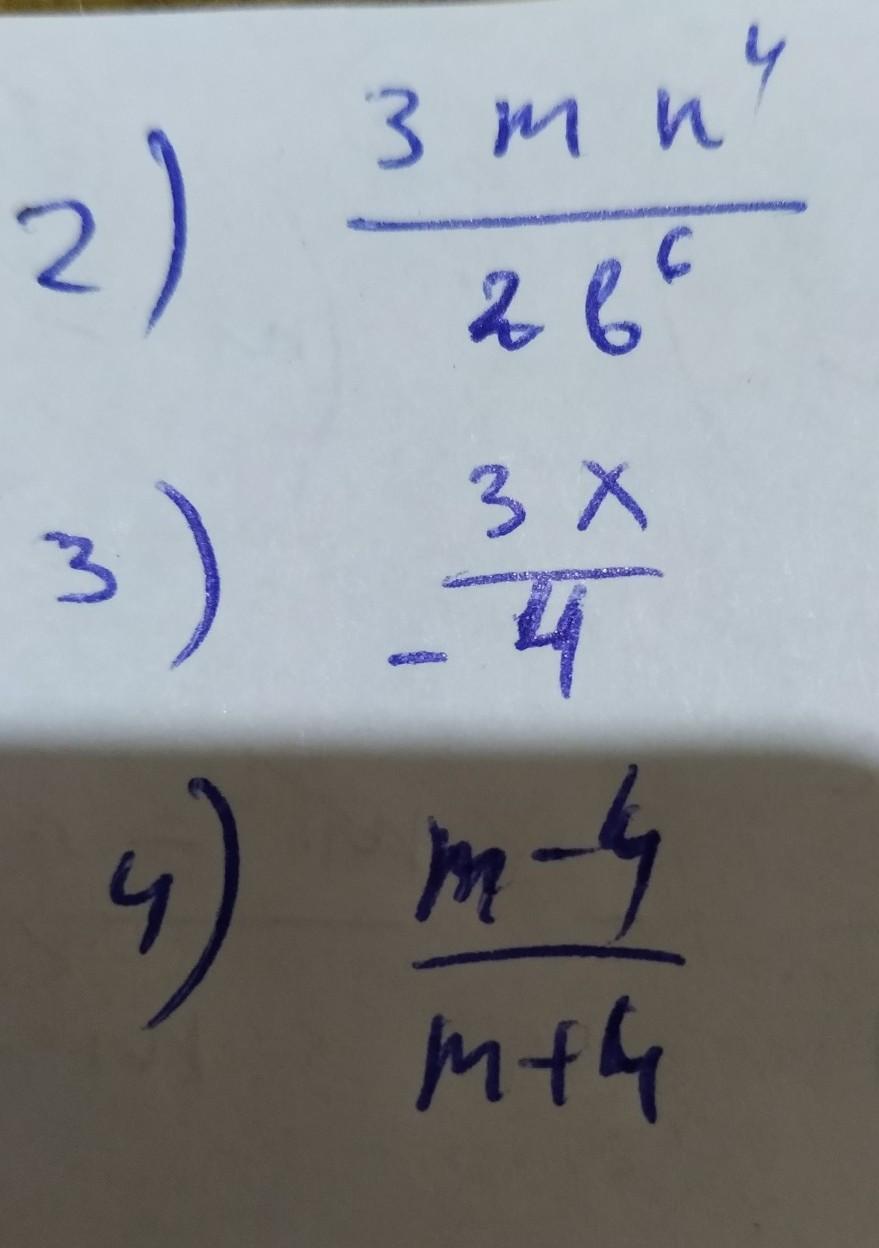 2) 3 m n⁴
2 b⁶
3) 3 x
- 4
4) m - 4
m + 4